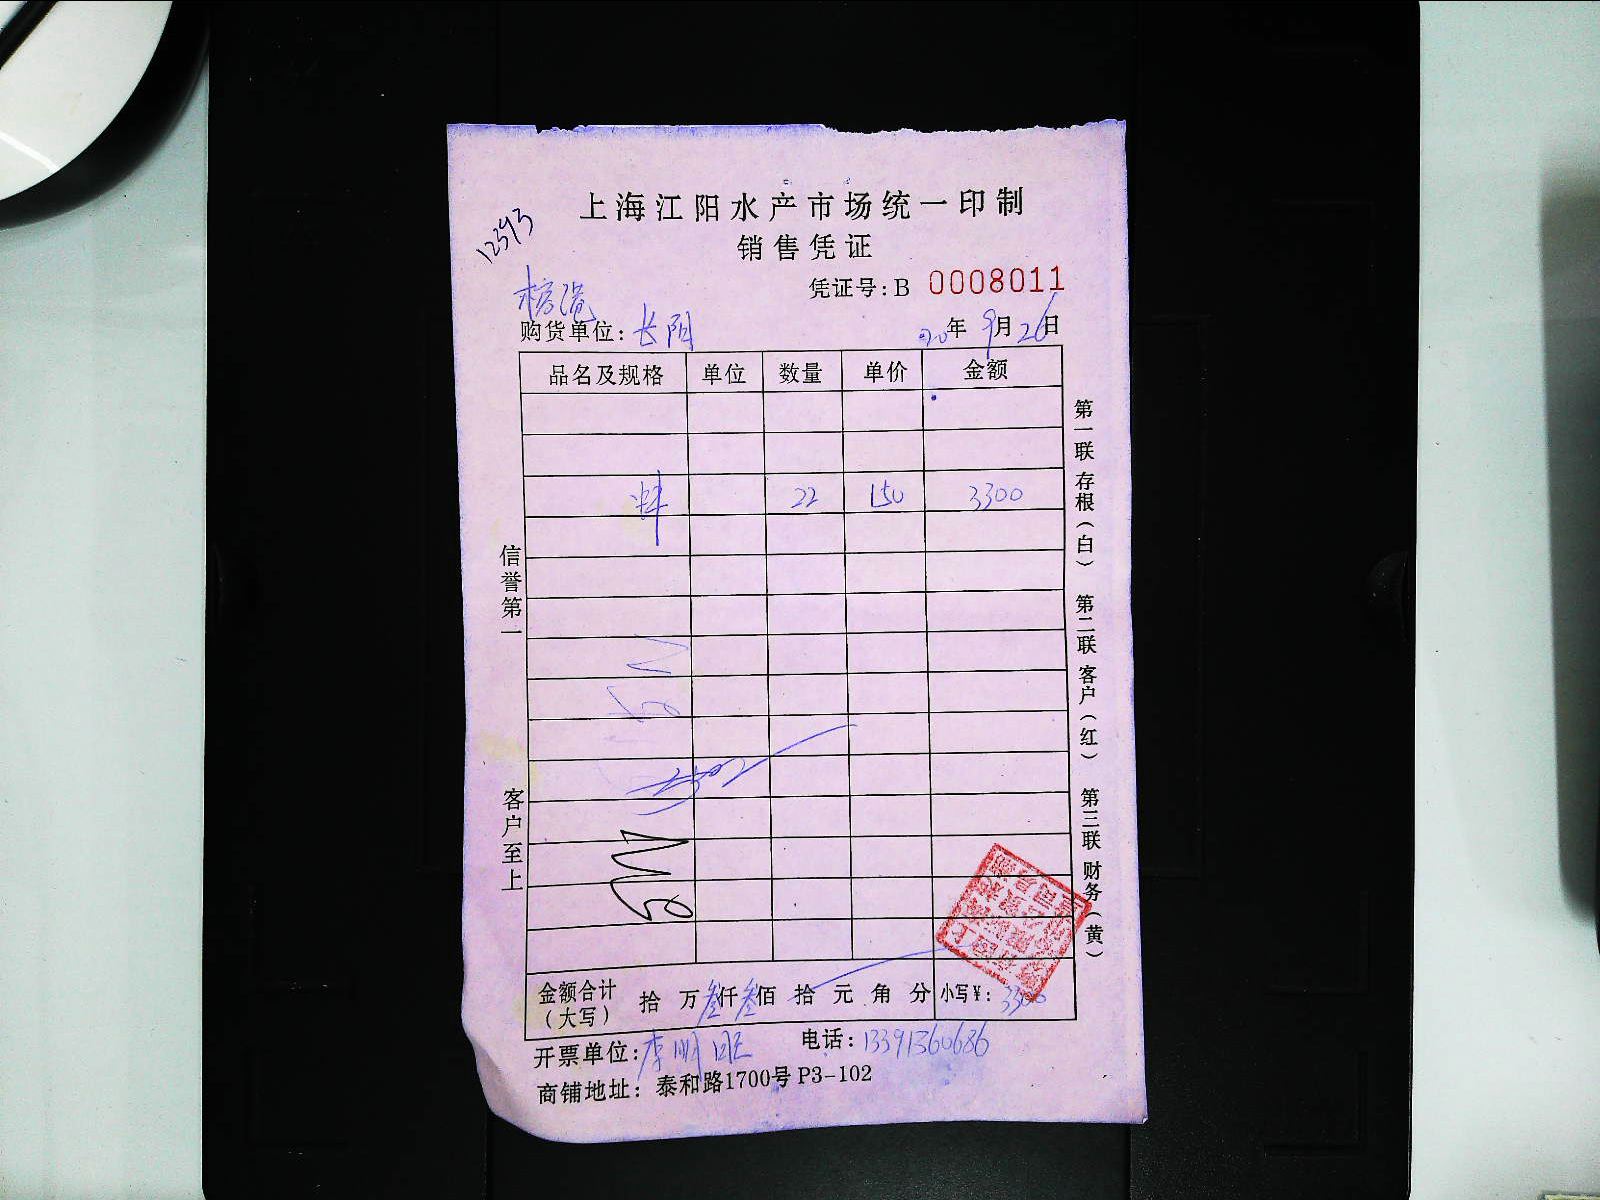 上海江阳水产市场统一印制
销售凭证
12593
凭证号:B 0008011
购货单位:长阳
20年9月26日
品名及规格 单位 数量 单价 金额
蚌 22 150 3300
信誉第一
客户至上
第一联存根(白) 第二联客户(红) 第三联财务(黄)
金额合计(大写) 拾 万 叁仟叁佰 拾 元 角 分 小写¥:3300
开票单位:李明旺 电话:13391360686
商铺地址:泰和路1700号P3-102